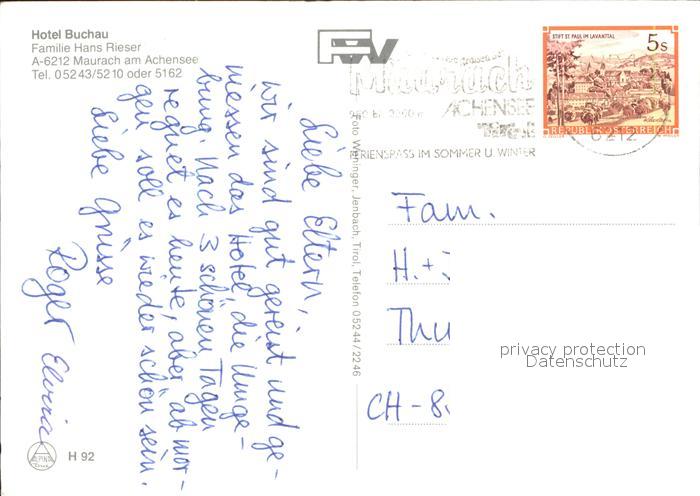 Hotel Buchau
Familie Hans Rieser
A-6212 Maurach am Achensee
Tel. 05243/5210 oder 5162
Liebe Eltern,
Wir sind gut gereist und ge-
niessen das Hotel, die Umge-
bung. Nach 3 schönen Tagen
regnet es heute, aber ab mor-
gen soll es wieder schön sein.
Liebe Grüsse
Roger Elvira
ALPINA
H 92
Foto Werninger, Jenbach, Tirol, Telefon 05244/2246
Maurach
ACHENSEE
TIROL
FERIENSPASS IM SOMMER U. WINTER
6212
STIFT ST. PAUL IM LAVANTTAL
5s
REPUBLIK ÖSTERREICH
Fam.
H. +
Thu
CH-8
privacy protection
Datenschutz